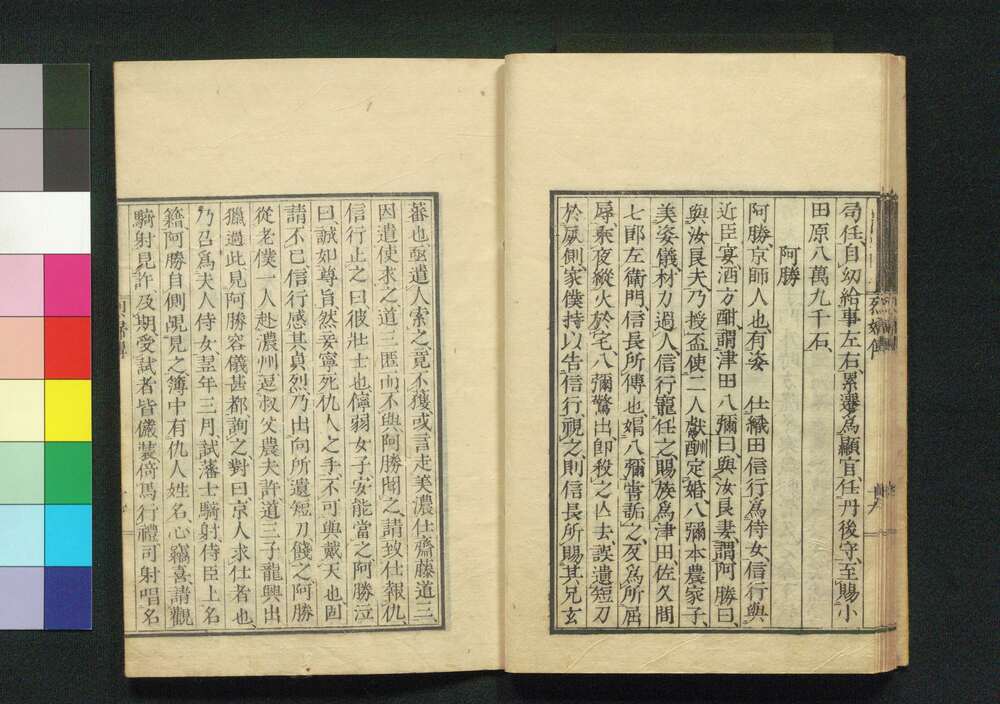 司任、自幼給事左右、累遷爲顯官、任丹後守、至賜小
田原八萬九千石、
阿勝
阿勝、京師人也、有姿 仕織田信行爲侍女、信行與
近臣宴、酒方酣、謂津田八彌曰、與汝良妻、謂阿勝曰、
與汝良夫、乃授盃使二人獻酬定婚、八彌本農家子、
美姿儀、材力過人、信行寵任之、賜族爲津田、佐久間
七郎左衛門、信長所傅也、娼八彌、嘗詬之、反爲所屈
辱、乘夜縱火於宅、八彌驚出、卽殺之亡去、誤遺短刀
於厠側、家僕持以告信行、視之、則信長所賜其兄玄
蕃也、亟遣人索之、竟不獲、或言走美濃仕齋藤道三、
因遣使求之、道三匿而不與、阿勝聞之、請致仕報仇、
信行止之曰、彼壯士也、儜弱女子、安能當之、阿勝泣
曰、誠如尊旨、然妾寧死仇人之手、不可與戴天也、固
請不已、信行感其貞烈、乃出向所遺短刀餞之、阿勝
從老僕一人、赴濃州、逗叔父農夫許、道三子龍興出
獵過此、見阿勝容儀甚都、詢之、對曰、京人求仕者也、
乃召爲夫人侍女、翌年三月、試藩士騎射、侍臣上名
籍、阿勝自側覘見之、簿中有仇人姓名、心竊喜、請觀
騎射、見許、及期、受試者皆儼裝倚馬、行禮可射唱名